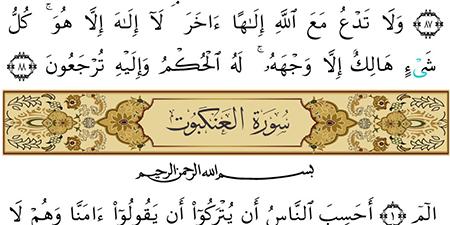 ﴿٨٧﴾ وَلَا تَدْعُ مَعَ ٱللَّهِ إِلَـٰهًا ءَاخَرَ ۘ لَآ إِلَـٰهَ إِلَّا هُوَ ۚ كُلُّ
شَىْءٍ هَالِكٌ إِلَّا وَجْهَهُۥ ۚ لَهُ ٱلْحُكْمُ وَإِلَيْهِ تُرْجَعُونَ ﴿٨٨﴾
سورة العنكبوت
بسم الله الرحمن الرحيم
الٓمٓ ﴿١﴾ أَحَسِبَ ٱلنَّاسُ أَن يُتْرَكُوٓا۟ أَن يَقُولُوٓا۟ ءَامَنَّا وَهُمْ لَا